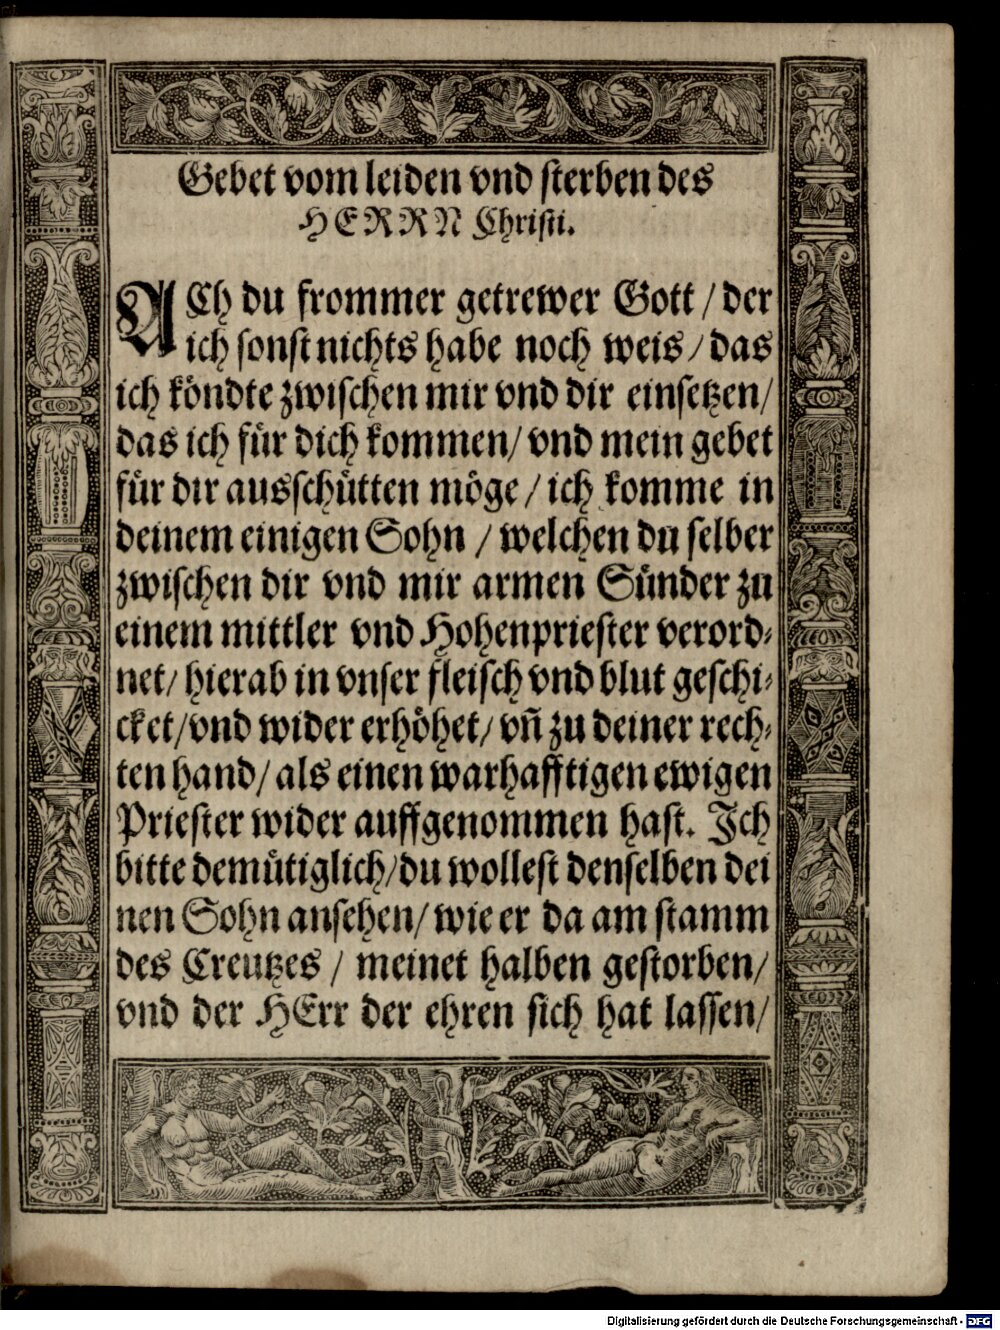 Gebet vom leiden vnd sterben des
HERRN Christi.
ACh du frommer getrewer Gott / der
ich sonst nichts habe noch weis / das
ich köndte zwischen mir vnd dir einsetzen /
das ich für dich kommen / vnd mein gebet
für dir ausschütten möge / ich komme in
deinem einigen Sohn / welchen du selber
zwischen dir vnd mir armen Sünder zu
einem mittler vnd Hohenpriester verord⸗
net / hierab in vnser fleisch vnd blut geschi⸗
cket / vnd wider erhöhet / vn̄ zu deiner rech⸗
ten hand / als einen warhafftigen ewigen
Priester wider auffgenommen hast. Ich
bitte demütiglich / du wollest denselben dei
nen Sohn ansehen / wie er da am stamm
des Creutzes / meinet halben gestorben /
vnd der HErr der ehren sich hat lassen /
Digitalisierung gefördert durch die Deutsche Forschungsgemeinschaft - DFG